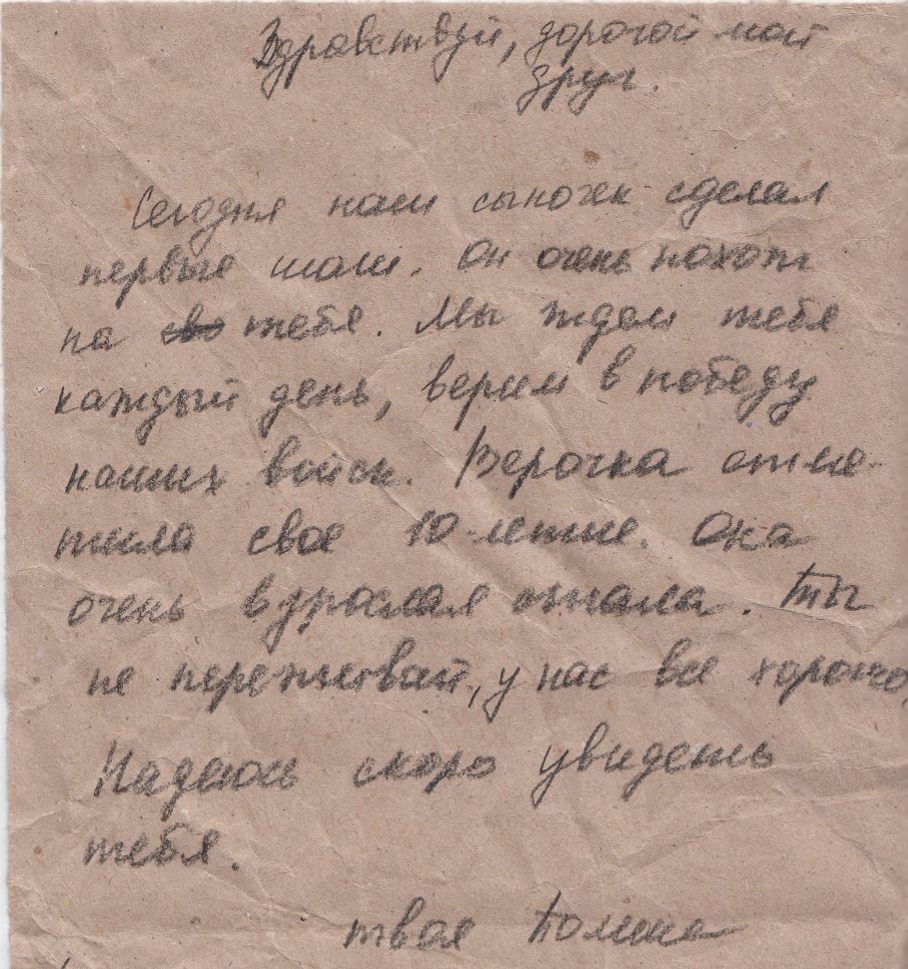 Здравствуй, дорогой мой
друг.
Сегодня наш сыночек сделал
первые шаги. Он очень похож
на ~~сво~~ тебя. Мы ждем тебя
каждый день, верим в победу
наших войск. Верочка отме-
тила свое 10-летие. Она
очень взрослая стала. Ты
не переживай, у нас все хорошо.
Надеюсь скоро увидеть
тебя.
твоя Полина